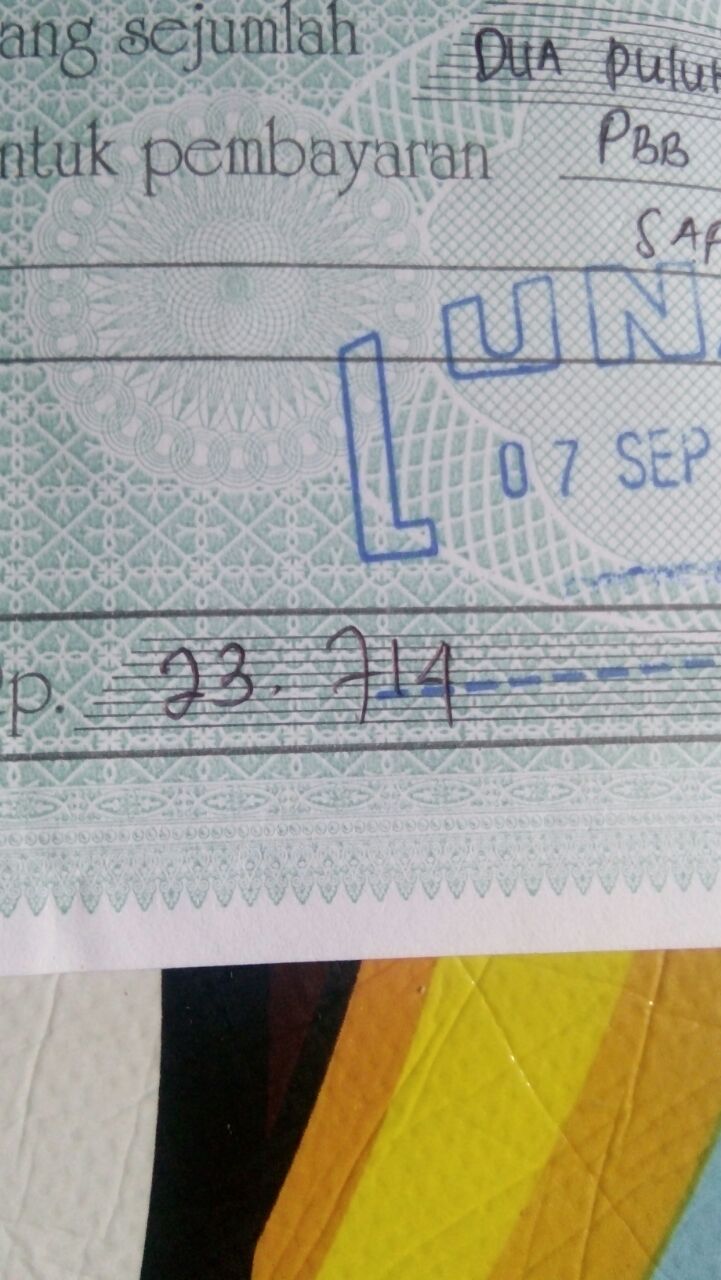 ang sejumlah DUA puluh
ntuk pembayaran PBB
SAP
LUNA
07 SEP
p. 23.714